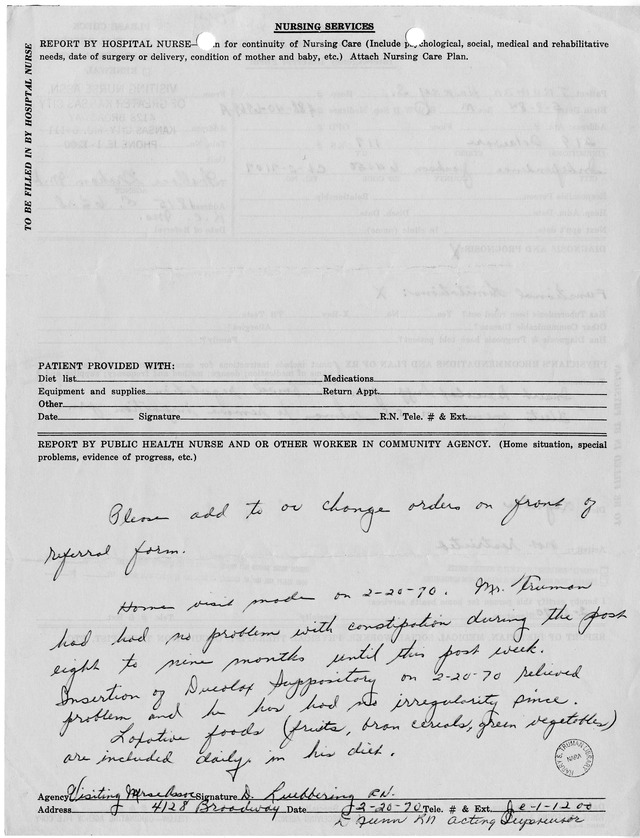 NURSING SERVICES
REPORT BY HOSPITAL NURSE— n for continuity of Nursing Care (Include p ychological, social, medical and rehabilitative
needs, date of surgery or delivery, condition of mother and baby, etc.) Attach Nursing Care Plan.
TO BE FILLED IN BY HOSIPTAL NURSE
PATIENT PROVIDED WITH:
Diet list Medications
Equipment and supplies Return Appt.
Other
Date Signature R.N. Tele. # & Ext.
REPORT BY PUBLIC HEALTH NURSE AND OR OTHER WORKER IN COMMUNITY AGENCY. (Home situation, special
problems, evidence of progress, etc.)
Please add to or change orders on front of
referral form.
Home visit made on 2-20-70. Mr. Truman
had had no problem with constipation during the past
eight to nine months until this past week.
Insertion of Ducolax Suppository on 2-20-70 relieved
problem and he has had no irregularity since.
Laxative foods (fruits, bran cereals, green vegetables)
are included daily in his diet.
HARRY S. TRUMAN LIBRARY
NARA
Agency Visiting Signature D. Luebbering RN.
Address 4128 Broadway Date 2-20-70 Tele. # & Ext. Je-1-1200
RN Acting Supervisor